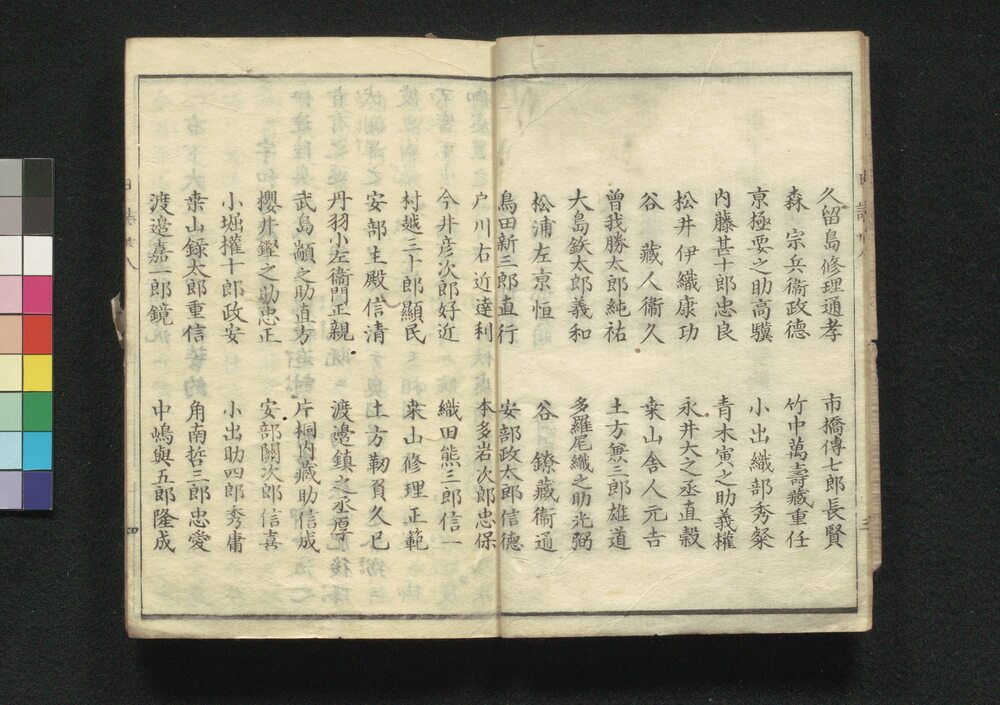 久留島修理通孝　市橋傳七郎長賢
森　宗兵衞政德　竹中萬壽藏重任
京極要之助高驥　小出織部秀粲
内藤甚十郎忠良　青木寅之助義權
松井伊織康功　永井大之丞直毅
谷　藏人衞久　桒山舎人元吉
曽我勝太郎純祐　土方無三郎雄道
大島鉄太郎義和　多羅尾織之助光弼
松浦左京恒　谷　鐐藏衞通
島田新三郎直行　安部政太郎信德
戸川右近達利　本多岩次郎忠保
今井彦次郎好近　織田熊三郎信一
村越三十郎顯民　桒山修理正範
安部主殿信清　土方勒負久巳
丹羽小左衞門正親　渡邉鎮之丞厚
武島顓之助直方　片桐内藏助信成
櫻井鏗之助忠正　安部關次郎信喜
小堀權十郎政安　小出助四郎秀庸
桒山録太郎重信　角南哲三郎忠愛
渡邉嘉一郎鏡　中嶋與五郎隆成
四